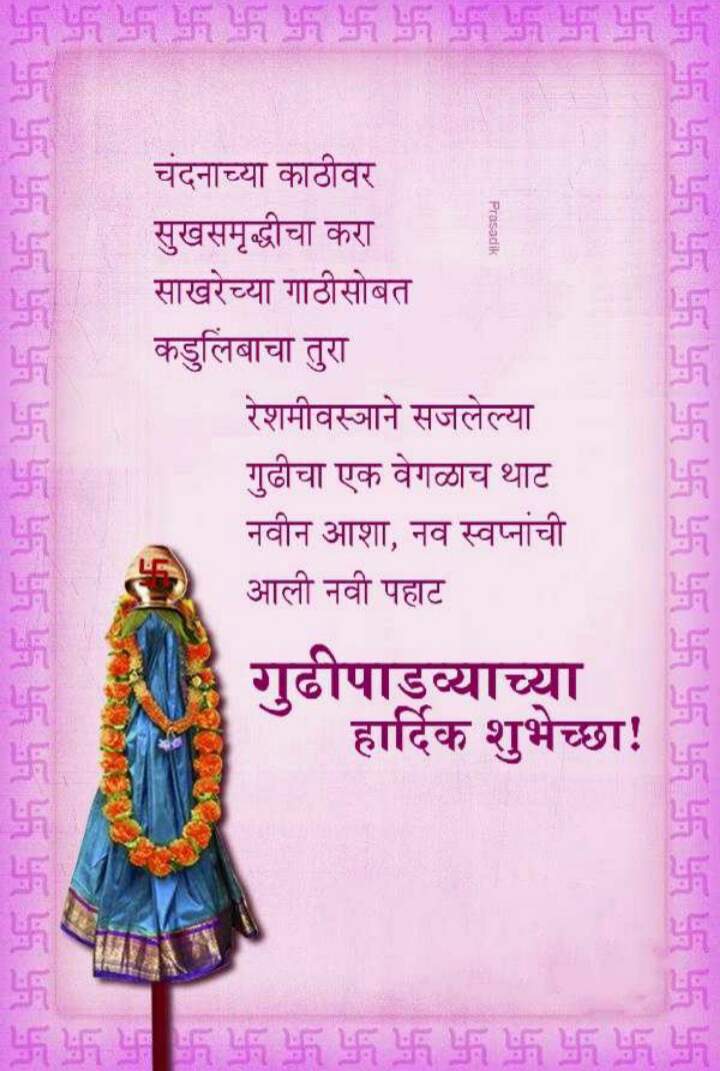 चंदनाच्या काठीवर
सुखसमृद्धीचा करा
साखरेच्या गाठीसोबत
कडुलिंबाचा तुरा
रेशमीवस्त्राने सजलेल्या
गुढीचा एक वेगळाच थाट
नवीन आशा, नव स्वप्नांची
आली नवी पहाट
गुढीपाडव्याच्या
हार्दिक शुभेच्छा!
Prasadik